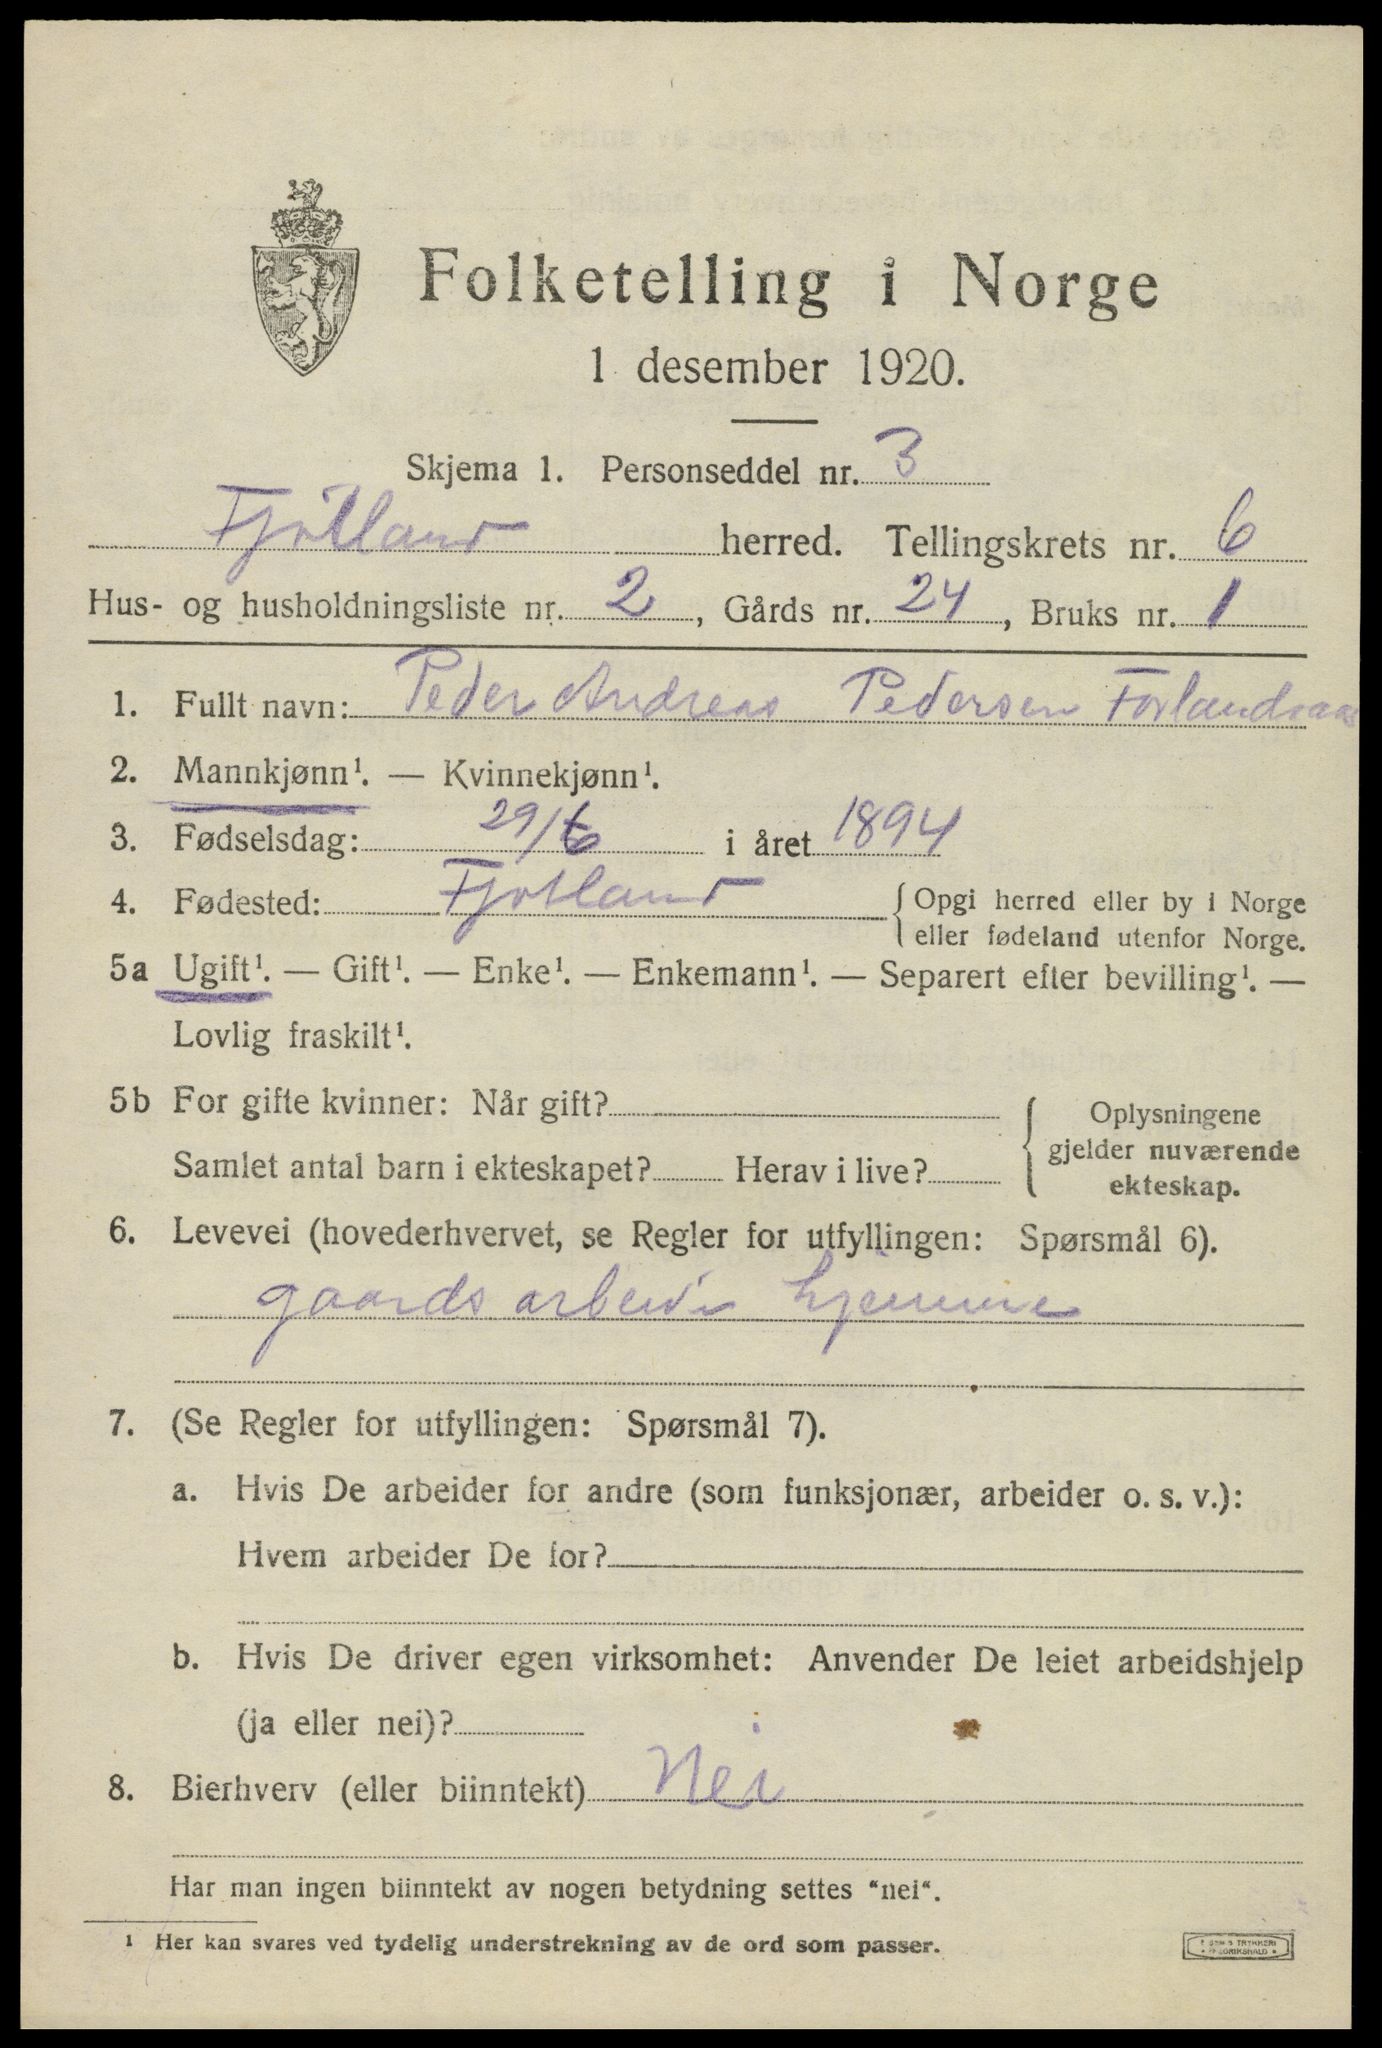 Folketelling i Norge
1 desember 1920.
Skjema 1. Personseddel nr. 3
Fjotland herred. Tellingskrets nr. 6
Hus- og husholdningsliste nr. 2, Gårds nr. 24, Bruks nr. 1
1. Fullt navn: Peder Andreas Pedersen
2. Mannkjønn¹. — Kvinnekjønn¹.
3. Fødselsdag: 29/6 i året 1894
4. Fødested: Fjotland { Opgi herred eller by i Norge
eller fødeland utenfor Norge.
5a Ugift¹. — Gift¹. — Enke¹. — Enkemann¹. — Separert efter bevilling¹. —
Lovlig fraskilt¹.
5b For gifte kvinner: Når gift?
Samlet antal barn i ekteskapet? Herav i live?
{ Oplysningene
gjelder nuværende
ekteskap.
6. Levevei (hovederhvervet, se Regler for utfyllingen: Spørsmål 6).
gaards arbeide hjemme
7. (Se Regler for utfyllingen: Spørsmål 7).
a. Hvis De arbeider for andre (som funksjonær, arbeider o. s. v.):
Hvem arbeider De for?
b. Hvis De driver egen virksomhet: Anvender De leiet arbeidshjelp
(ja eller nei)?
8. Bierhverv (eller biinntekt) Nei
Har man ingen biinntekt av nogen betydning settes “nei“.
¹ Her kan svares ved tydelig understrekning av de ord som passer.